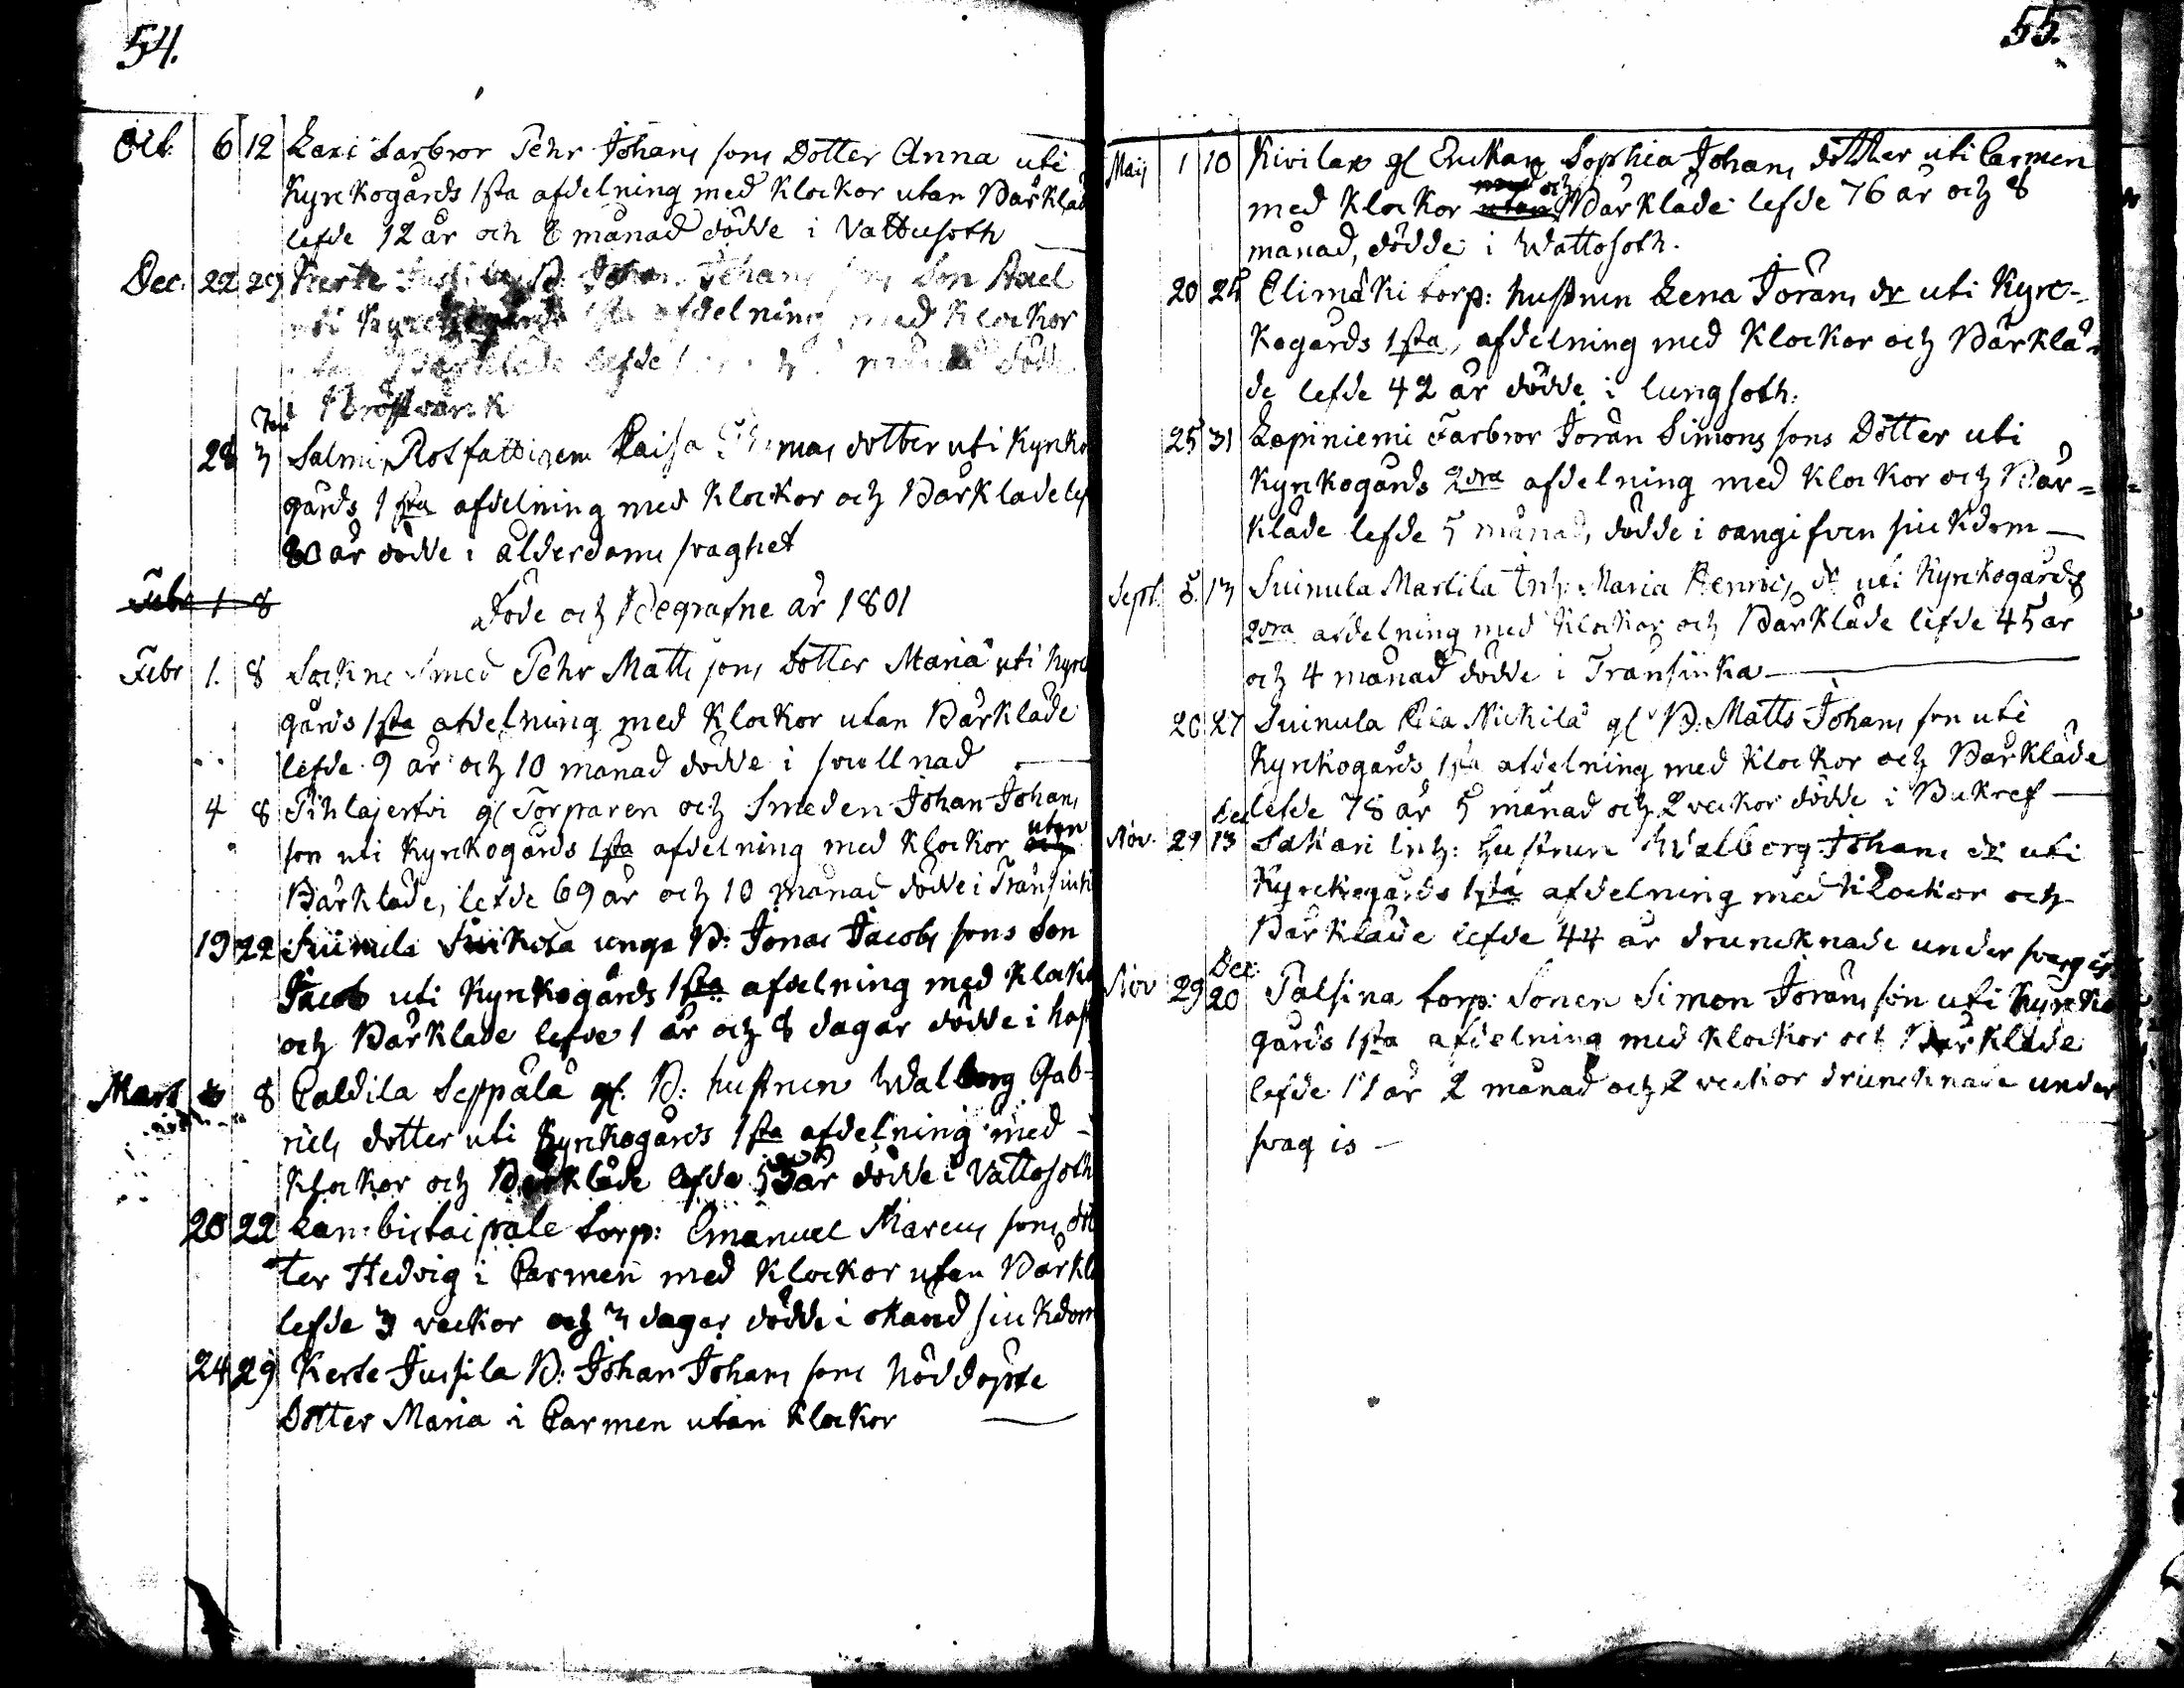 54.
Oct. 6 12 Laxi farbror Pehr Johans sons Dotter Anna uti
Kyrckogårds 1sta afdelning med Klockor utan Bårkläd
lefde 12 år och 8 månad dödde i Vattusoth
Dec. 22 29 Kerte Johan Johans son Son Axel
uti afdelning med Klockor
Bårkläde lefde månad dödde
i Bröstvärck
Jan
28 3 Salmi Rotfattigen Caisa dotter uti Kyrko
gårds 1sta afdelning med Klockor och Bårkläde lef
80 år dödde i ålderdoms svaghet
Febr 1 8
Döde och Begrafne år 1801
Febr 1. 8 Sockne Smed Pehr Matts sons Dotter Maria uti Kyrc
gårds 1sta afdelning med Klockor utan Bårkläde
lefde 9 år och 10 månad dödde i svullnad
4 8 Pihlajerfvi gl Torparen och Smeden Johan Johans
son uti Kyrckogårds 1sta afdelning med Klockor utan och
Bårkläde, lefde 69 år och 10 månad dödde i Transiuk
19 22 Suinula unga B: Jonas Jacobs sons Son
Jacob uti Kyrkogårds 1sta afdelning med Klock
och Bårkläde lefde 1 år och 8 dagar dödde i
Mart 8 Paldila Seppälä gl. B: hustrun Walborg Gab-
riels dotter uti Kyrkogårds 1sta afdelning med
Klockor och Bårkläde lefde 55 år dödde i Vattosoth
20 22 torp: Emanuel Marcus sons dot
ter Hedvig i Carmen med Klockor utan Bårklä
lefde 3 veckor och 3 dagar dödde i okänd siukdom
24 29 Kerte Jussila B: Johan Johans sons Nöddöpte
Dotter Maria i Carmen utan Klockor
55.
Maij 1 10 Kivilax gl Enckan Sophia Johans dotter uti Carmen
med Klockor utan med och Bårkläde lefde 76 år och 8
månad, dödde i Wattosoth.
20 24 Elimäki torp: hustrun Lena Jörans dr uti Kyrc-
kogårds 1sta afdelning med Klockor och Bårklä-
de lefde 42 år dödde i lungsoth.
25 31 Lepiniemi Farbror Jöran Simons sons Dotter uti
Kyrckogårds 2dra afdelning med Klockor och Bår=
kläde lefde 5 månad, dödde i oangifven siukdom
Sept. 8. 13 Suinula Martila Inh: Maria Henrics dr uti Kyrckogårds
2dra afdelning med Klockor och Bårkläde lefde 45 år
och 4 månad dödde i Transiuka
20 27 Suinula Nickilä gl B: Matts Johans son uti
Kyrckogårds 1sta afdelning med Klockor och Bårkläde
lefde 78 år 5 månad och 2 veckor dödde i Bukref
Dec
Nov. 29 13 Sakari Inh: hustrun Walborg Johans dr uti
Kyrckogårds 1sta afdelning med Klockor och
Bårkläde lefde 44 år druncknade under svag is
Dec.
Nov 29 20 Palsina torp: Sonen Simon Jörans son uti Kyrcko
gårds 1sta afdelning med Klockor och Bårkläde
lefde 11 år 2 månad och 2 veckor druncknade under
svag is